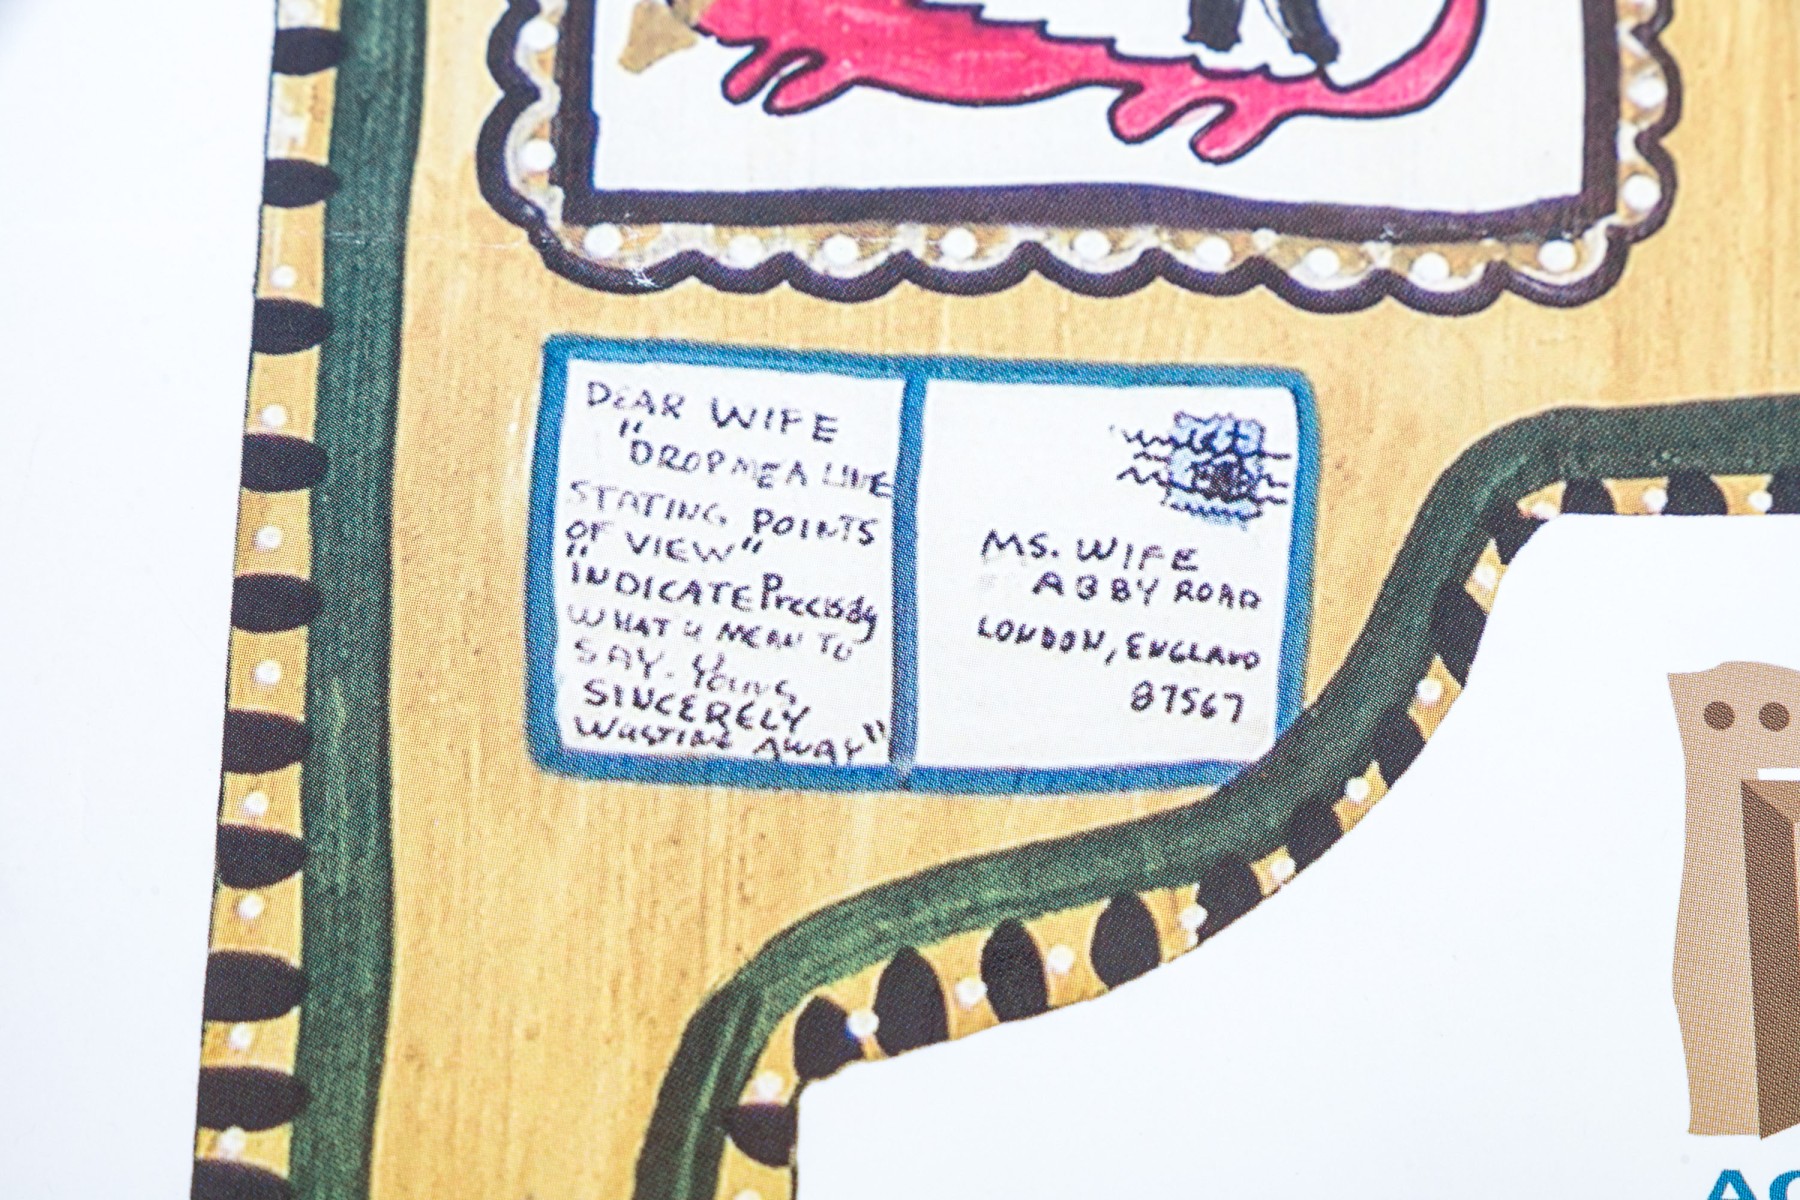 DEAR WIFE
"DROP ME A LINE
STATING POINTS
OF VIEW"
"INDICATE Precisely
WHAT U MEAN TO
SAY. YOURS
SINCERELY
WASTING AWAY"
MS. WIFE
ABBY ROAD
LONDON, ENGLAND
87567